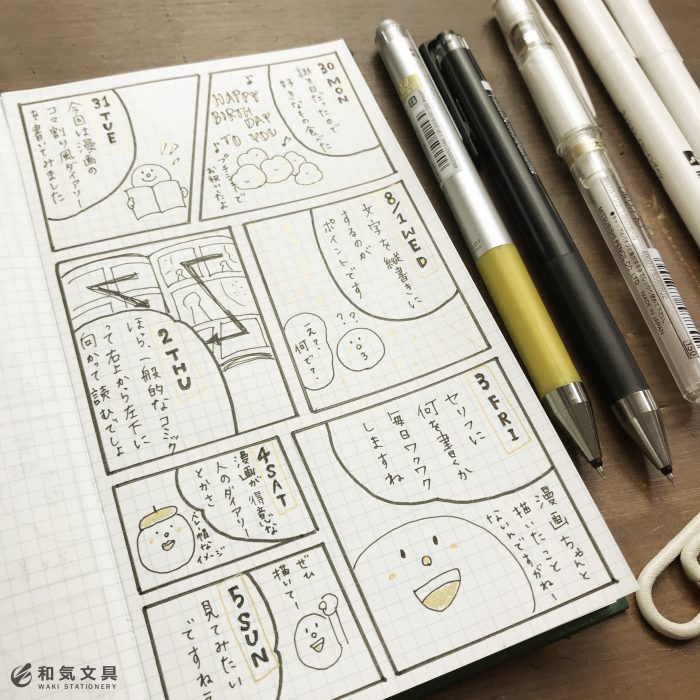 30 MON
誕生日だったので
好きなもの食べた
♪
HAPPY
BIRTH
DAY
TO
YOU
♪
お祝いだよ
31 TUE
今回は漫画の
コマ割り風ダイアリー
を書いてみました
8/1 WED
文字を縦書きに
するのが
ポイントです
??
え？
何で？
2 THU
ほら、一般的なコミック
って右上から左下に
向かって読むでしょ
3 FRI
セリフに
何を書くか
毎日ワクワク
しますね
漫画ちゃんと
描いたこと
ないんですがねー
4 SAT
漫画が得意な
人のダイアリー
とかさ
ベレー帽なイメージ
5 SUN
ぜひ
描いてー
見てみたい
ですねぇ
和気文具
WAKI STATIONERY
MITSUBISHI PENCIL CO., LTD.
MADE IN JAPAN